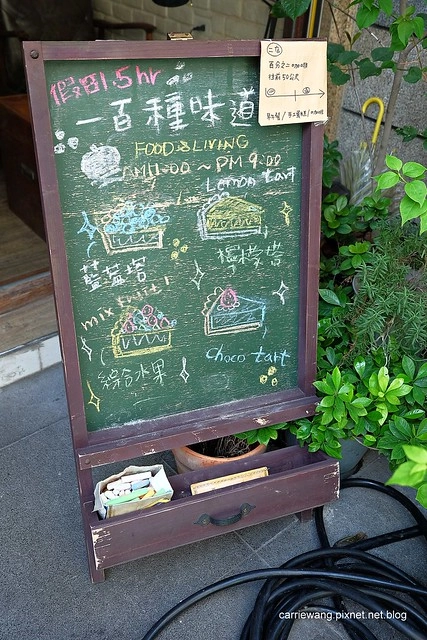 假日1.5hr
一百種味道
FOOD & LIVING
AM11:00~PM9:00
Lemon tart
藍莓塔
檸檬塔
mix fruit!
綜合水果
Choco tart
二店
百分之二咖啡
往前50公尺
carriewang.pixnet.net.blog